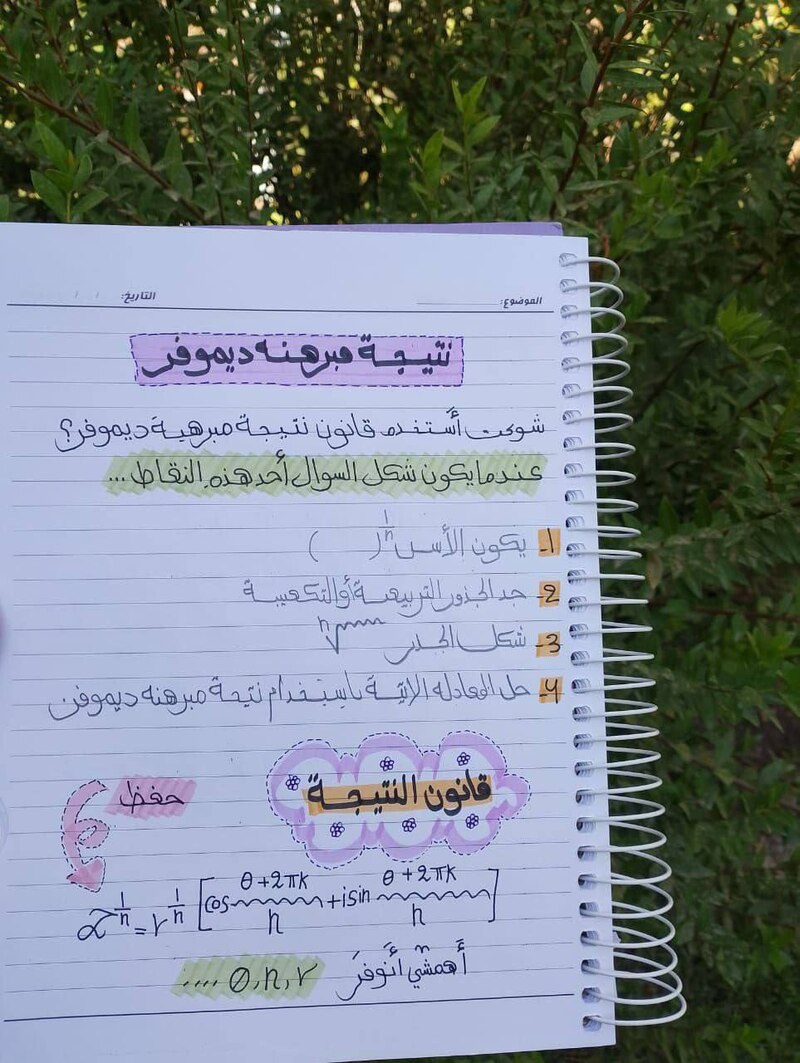 الموضوع: التاريخ: / /
نتيجة مبرهنه ديموفر
شوكت أستخدم قانون نتيجة مبرهنة ديموفر؟
عندما يكون شكل السوال أحد هذه النقاط ...
1- يكون الأس ( )^{1/n}
2- جد الجذور التربيعية أو التكعيبية
3- شكل الجذر ⁿ√
4- حل المعادله الاتية باستخدام نتيجة مبرهنه ديموفر
قانون النتيجة
حفظ
z^{1/n} = r^{1/n} [cos (θ+2πk)/n + i sin (θ+2πk)/n]
أهمشي أنوفر θ, n, r ....